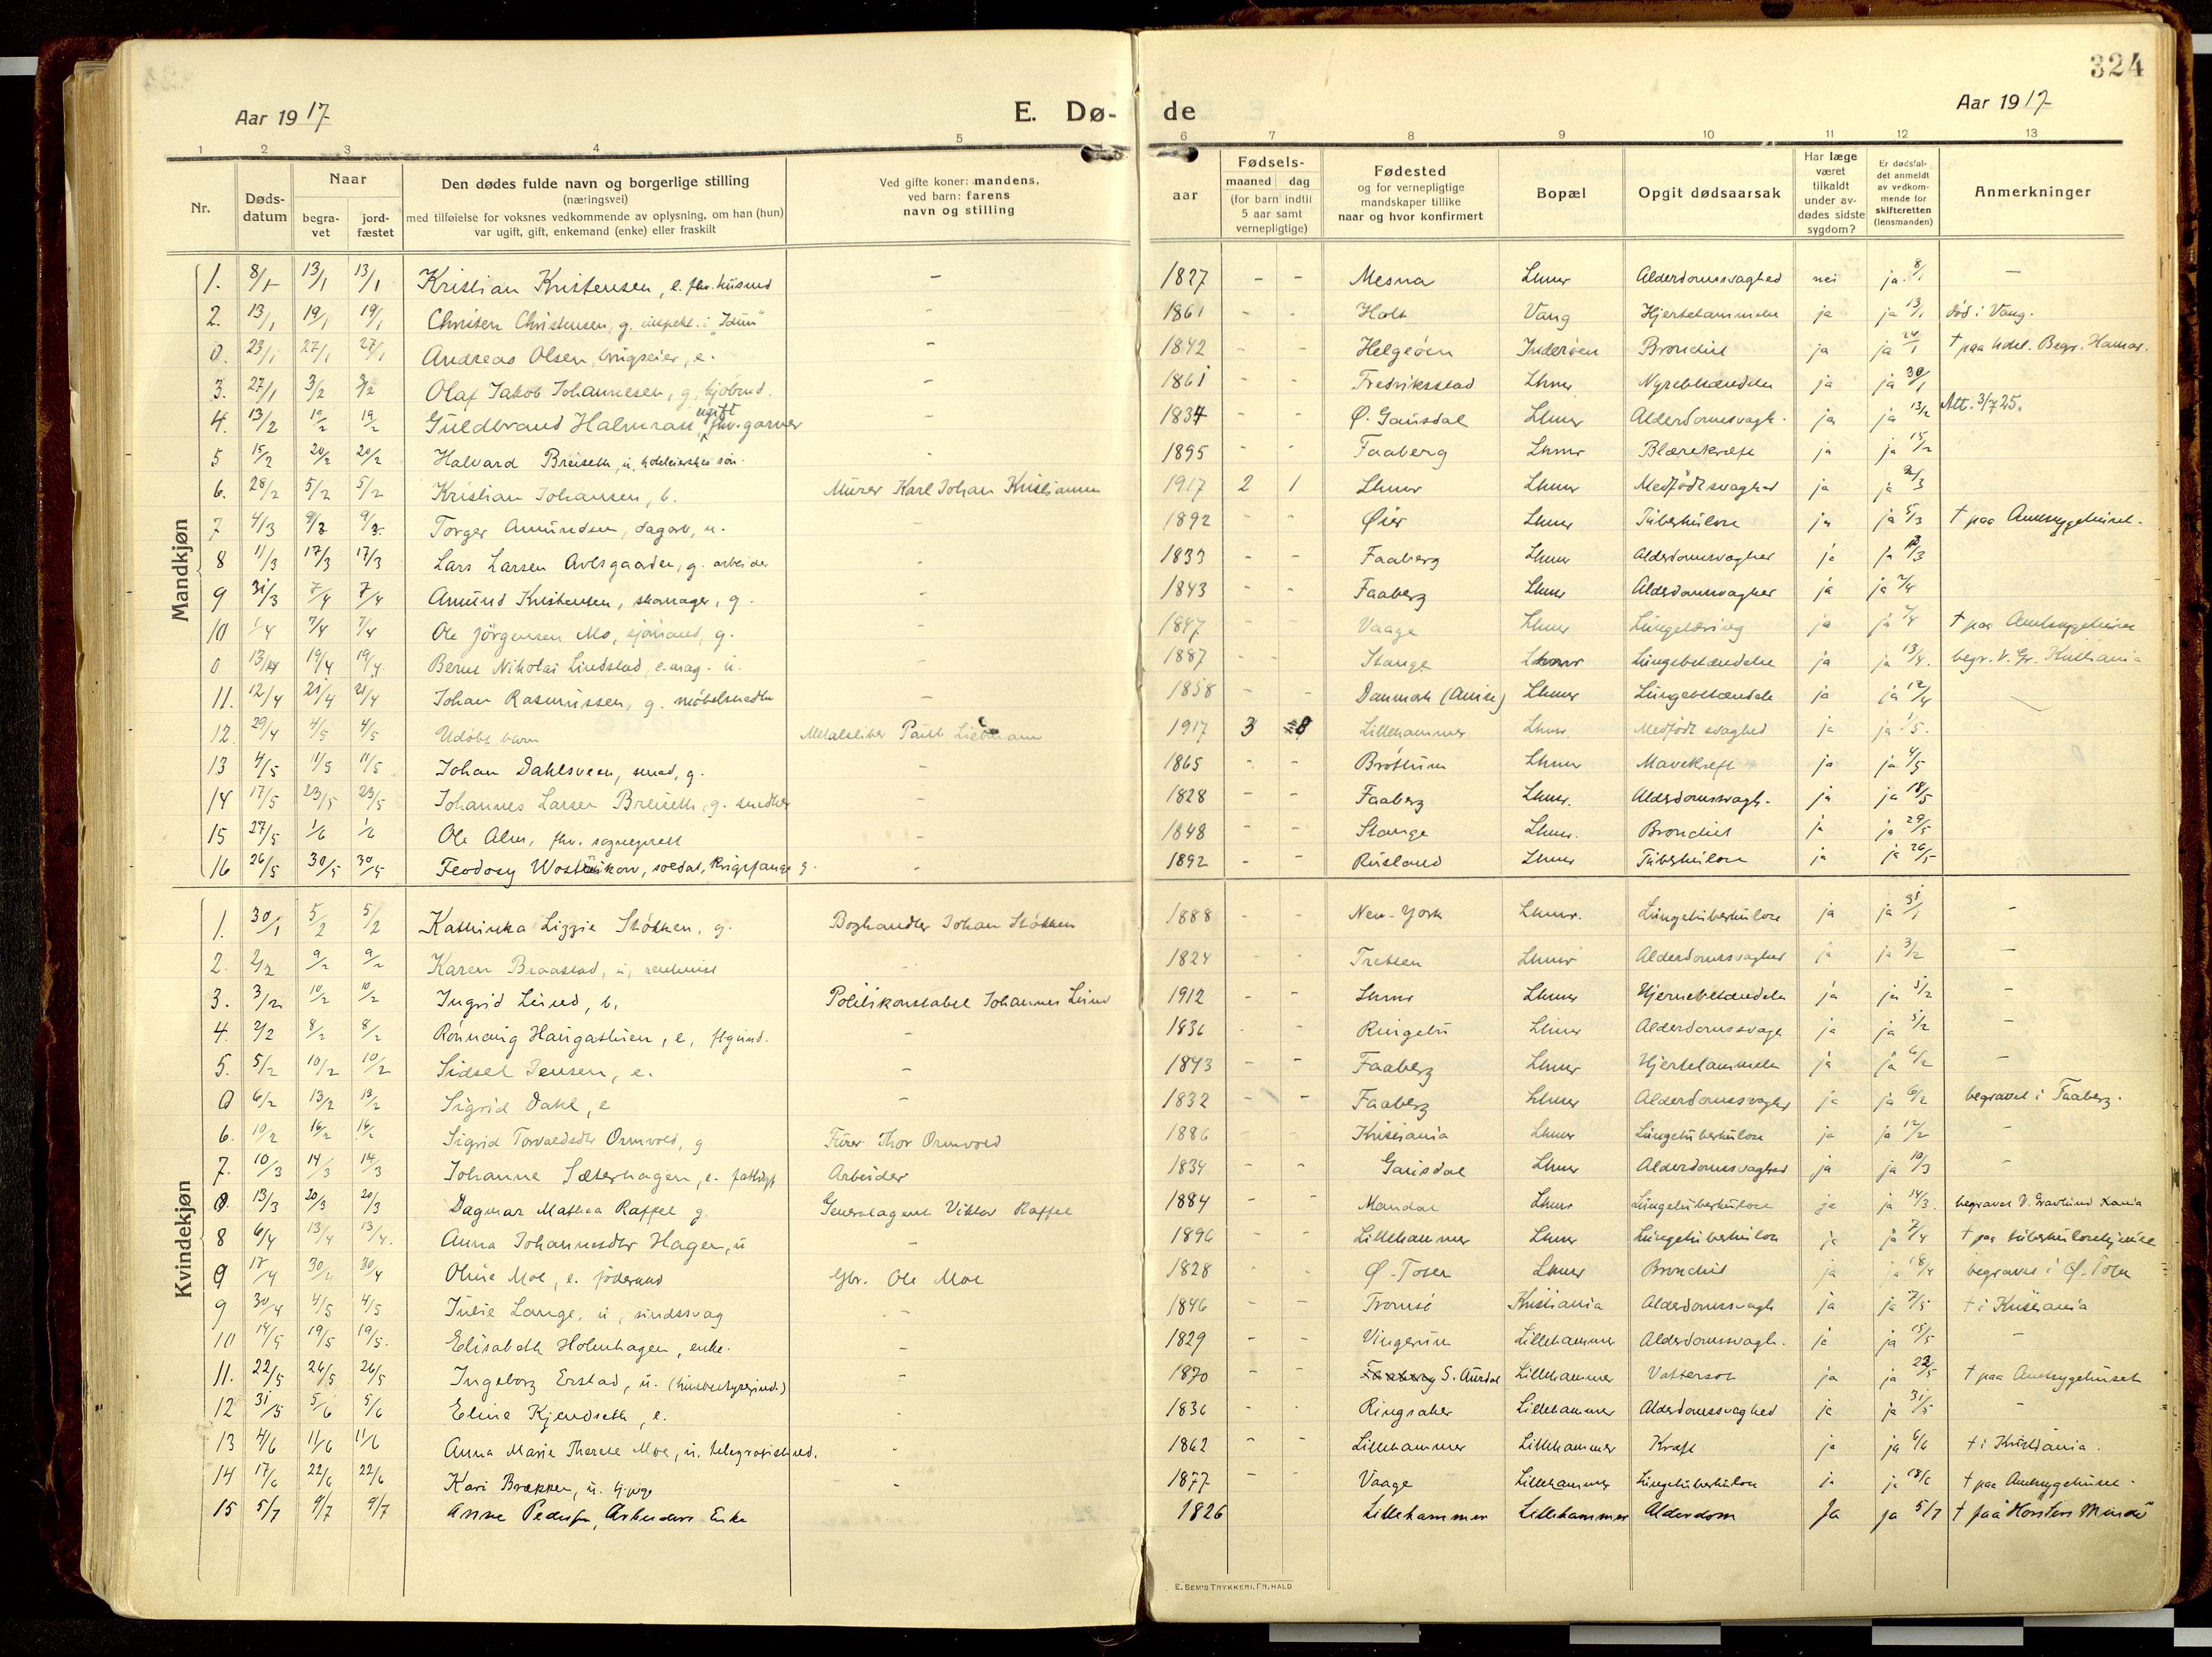 324
Aar 1917 E. Dø- de Aar 1917
1 2 3 4 5 6 7 8 9 10 11 12 13
Nr. Døds-datum Naar begra-vet jord-fæstet Den dødes fulde navn og borgerlige stilling (næringsvei) med tilføielse for voksnes vedkommende av oplysning, om han (hun) var ugift, gift, enkemand (enke) eller fraskilt Ved gifte koner: mandens, ved barn: farens navn og stilling aar Fødsels- maaned dag (for barn indtil 5 aar samt vernepligtige) Fødested og for vernepligtige mandskaper tillike naar og hvor konfirmert Bopæl Opgit dødsaarsak Har læge været tilkaldt under av-dødes sidste sygdom? Er dødsfal-det anmeldt av vedkom-mende for skifteretten (lensmanden) Anmerkninger
Mandkjøn
1. 8/1 13/1 13/1 Kristian Kristensen, e. fhv. husmd — 1827 - - Mesna Lhmr Alderdomssvaghed nei ja 8/1 —
2. 13/1 19/1 19/1 Christen Christensen, g. inspekt. i "Idun" - 1861 - - Holt Vang Hjertelammelse ja ja 13/1 død i Vang.
0. 23/1 27/1 27/1 Andreas Olsen, brugseier, e. - 1842 - - Helgeøen Inderøen Bronchit ja ja 24/1 † paa hotel. Begr. Hamar.
3. 27/1 3/2 3/2 Olaf Jakob Johannesen, g. kjøbmd. - 1861 - - Fredriksstad Lhmr Nyrebetændelse ja ja 30/1
4. 13/2 19/2 19/2 Guldbrand Halmrast, ugift fhv. garver - 1834 - - Ø. Gausdal Lhmr Alderdomssvagh. ja ja 13/2 Att. 3/7 25.
5 15/2 20/2 20/2 Halvard Breiseth, u, hoteleierskes søn. - 1895 - - Faaberg Lhmr Blærekræft ja ja 15/2
6. 28/2 5/2 5/2 Kristian Johansen, b. Murer Karl Johan Kristiansen 1917 2 1 Lhmr Lhmr Medfødt svaghed ja ja 2/3
7 4/3 9/3 9/3 Torger Amundsen, dagarb, u. - 1892 - - Øier Lhmr Tuberkulose ja ja 5/3 † paa Amtssygehuset.
8 11/3 17/3 17/3 Lars Larsen Avlsgaarden, g. arbeider - 1833 - - Faaberg Lhmr Alderdomssvaghed ja ja /3
9 31/3 7/4 7/4 Amund Kristensen, skomager, g. - 1843 - - Faaberg Lhmr Alderdomssvaghed ja ja 2/4
10 1/4 7/4 7/4 Ole Jørgensen Mo, sjømand, g. - 1847 - - Vaage Lhmr Lungetæring ja ja /4 † paa Amtssygehuset
0 13/4 19/4 19/4 Bernt Nikolai Lindstad, e.mag. u. - 1887 - - Stange Lhmr Lungebetændelse ja ja 13/4. begr. V. Gr. Kristiania
11. 12/4 21/4 21/4 Johan Rasmussen, g. møbelsnedker - 1858 - - Danmark Lhmr Lungebetændelse ja ja 12/4
12. 29/4 4/5 4/5 Udøbt barn Metalsliber Paul 1917 3 8 Lillehammer Lhmr. Medfødt svaghed ja ja 1/5.
13 4/5 11/5 11/5 Johan Dahlsveen, smed, g. - 1865 - - Brøttum Lhmr Mavekræft ja ja 4/5
14 17/5 23/5 23/5 Johannes Larsen Breiseth, g. snedker - 1828 - - Faaberg Lhmr. Alderdomssvagh. ja ja 18/5
15 27/5 1/6 1/6 Ole Alm, fhv. sogneprest - 1848 - - Stange Lhmr. Bronchit ja ja 29/5
16 26/5 30/5 30/5 Feodosy Wostrikow, soldat, krigsfange g. - 1892 - - Rusland Lhmr Tuberkulose ja ja 26/5
Kvindekjøn
1. 30/1 5/2 5/2 Kathinka Lizzie Støkken, g. Boghandler Johan Støkken 1888 - - New-York Lhmr. Lungetuberkulose ja ja 31/1 -
2. 2/2 9/2 9/2 Karen Braastad, u, rentenist - 1824 - - Tretten Lhmr Alderdomssvaghed ja ja 3/2 -
3. 3/2 10/2 10/2 Ingrid Lund, b. Politikonstabel Johannes Lund 1912 - - Lhmr Lhmr Hjernebetændelse ja ja 5/2 -
4. 2/2 8/2 8/2 Rønnaug Haugastuen, e, ftgund. - 1836 - - Ringebu Lhmr Alderdomssvagh ja ja 5/2 -
5. 5/2 10/2 10/2 Sidsel Jensen, e. - 1843 - - Faaberg Lhmr Hjertelammelse ja ja 6/2 -
0 6/2 13/2 13/2 Sigrid Dahl, e - 1832 - - Faaberg Lhmr Alderdomssvaghed ja ja 6/2 begravet i Faaberg.
6. 10/2 16/2 16/2 Sigrid Torvaldsdtr Ormvold, g Furer Thor Ormvold 1886 - - Kristiania Lhmr Lungetuberkulose ja ja 12/2 -
7. 10/3 14/3 14/3 Johanne Sæterhagen, e. fattigu Arbeider 1834 - - Gausdal Lhmr Alderdomssvaghed ja ja 10/3 -
0. 13/3 20/3 20/3 Dagmar Mathea Raffel g. Generalagent Viktor Raffel 1884 - - Mandal Lhmr Lungetuberkulose ja ja 14/3. begravet V. Gravlund Kania
8 6/4 13/4 13/4. Anna Johannesdtr Hagen, u - 1896 - - Lillehammer Lhmr Lungetuberkulose ja ja 7/4 † paa tuberkulosehjemmet
9 17/4 30/4 30/4 Oline Moe, e. føderaad Gbr. Ole Moe 1828 - - Ø-Toten Lhmr Bronchit ja ja 18/4 begravet i Ø-Toten
9 30/4 4/5 4/5 Julie Lange, u, sindssvag - 1846 - - Tromsø Kristiania Alderdomssvagh ja ja 7/5 † i Kristiania
10 14/5 19/5 19/5. Elisabeth Holmhagen, enke. - 1829 - - Vingerum Lillehammer Alderdomssvagh. ja ja 15/5 -
11. 22/5 26/5 26/5 Ingeborg Erstad, u. - 1870 - - Faaberg S. Aurdal Lillehammer Vattersot ja ja 22/5 † paa Amtssygehuset
12 31/5 5/6 5/6 Eline Kjendseth, e. - 1836 - - Ringsaker Lillehammer Alderdomssvaghed ja ja 31/5 -
13 4/6 11/6 11/6 Anna Marie Therese Moe, u. telegrafistind. - 1862 - - Lillehammer Lillehammer Kræft ja ja 6/6 † i Kristiania.
14 17/6 22/6 22/6 Kari Brækken, u. tj.pige - 1877 - - Vaage Lillehammer Lungetuberkulose ja ja 18/6 † paa Amtssygehuset.
15 5/7 9/7 9/7 Anne Pedersen, Arbeiders Enke 1826 Lillehammer Lillehammer Alderdom Ja ja 5/7 † paa Horsters Minde"
E. SEM'S TRYKKERI, FR. HALD